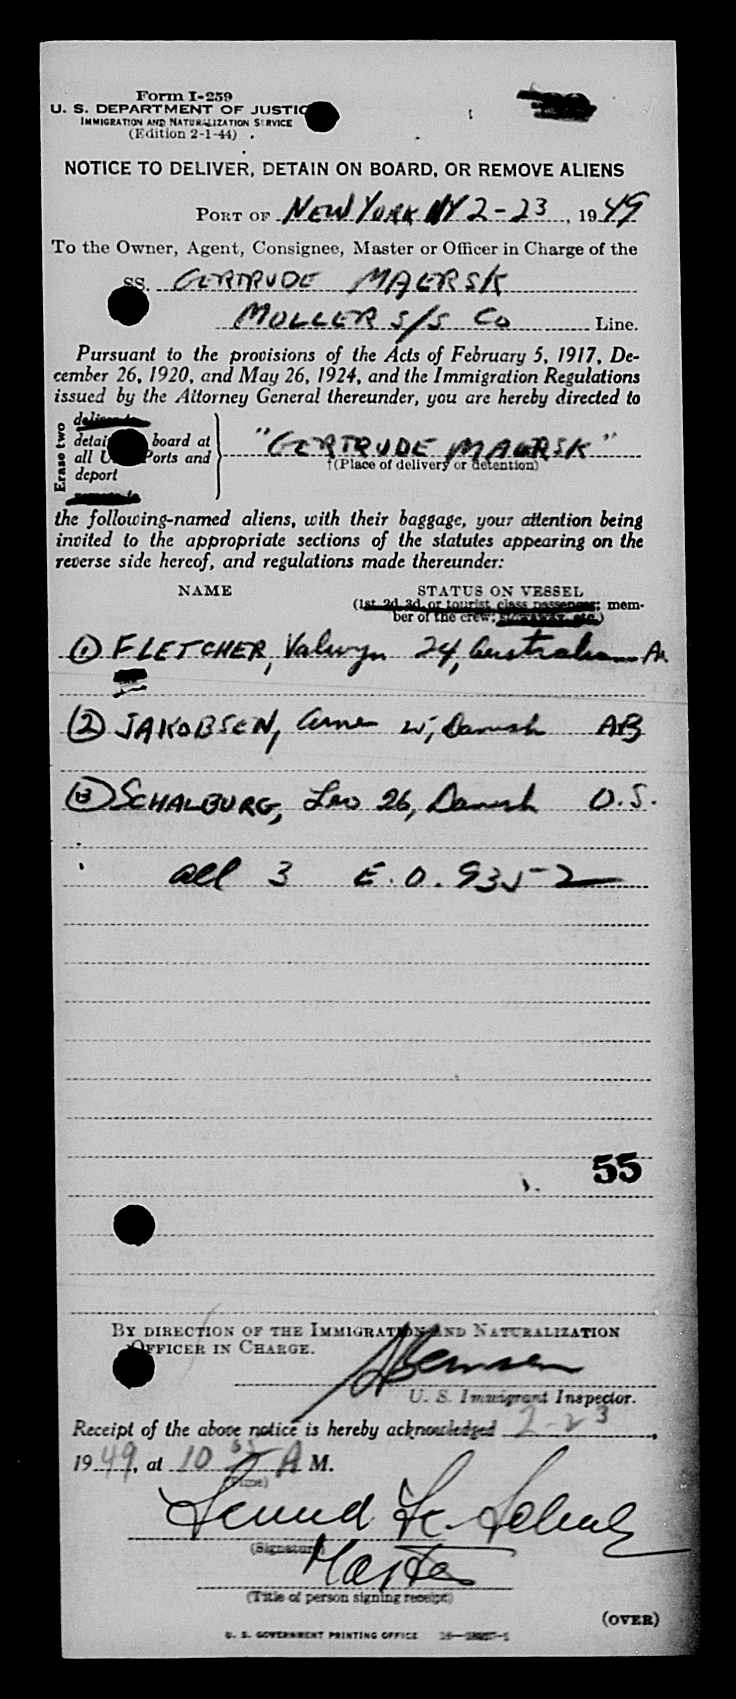 Form I-259
U. S. DEPARTMENT OF JUSTIC
IMMIGRATION AND NATURALIZATION SERVICE
(Edition 2-1-44)
NOTICE TO DELIVER, DETAIN ON BOARD, OR REMOVE ALIENS
PORT OF NEW YORK NY 2-23, 1949
To the Owner, Agent, Consignee, Master or Officer in Charge of the
SS. GERTRUDE MAERSK
MOLLER S/S Co Line.
Pursuant to the provisions of the Acts of February 5, 1917, De-
cember 26, 1920, and May 26, 1924, and the Immigration Regulations
issued by the Attorney General thereunder, you are hereby directed to
Erase two
deliver to
detai board at
all U Ports and
deport
"GERTRUDE MAERSK"
†(Place of delivery or detention)
the following-named aliens, with their baggage, your attention being
invited to the appropriate sections of the statutes appearing on the
reverse side hereof, and regulations made thereunder:
NAME STATUS ON VESSEL
(1st, 2d, 3d, or tourist class passenger; mem-
ber of the crew; stowaway, etc.)
(1) FLETCHER, Valwyn 24, Australian
(2) JAKOBSEN, Arne Danish AB
(3) SCHALBURG, Leo 26, Danish O.S.
all 3 E.O. 9352
55
BY DIRECTION OF THE IMMIGRATION AND NATURALIZATION
OFFICER IN CHARGE.
U. S. Immigrant Inspector.
Receipt of the above notice is hereby acknowledged 2-23,
1949, at 10 A M.
(Time)
(Signature)
Master
(Title of person signing receipt)
(OVER)
U. S. GOVERNMENT PRINTING OFFICE